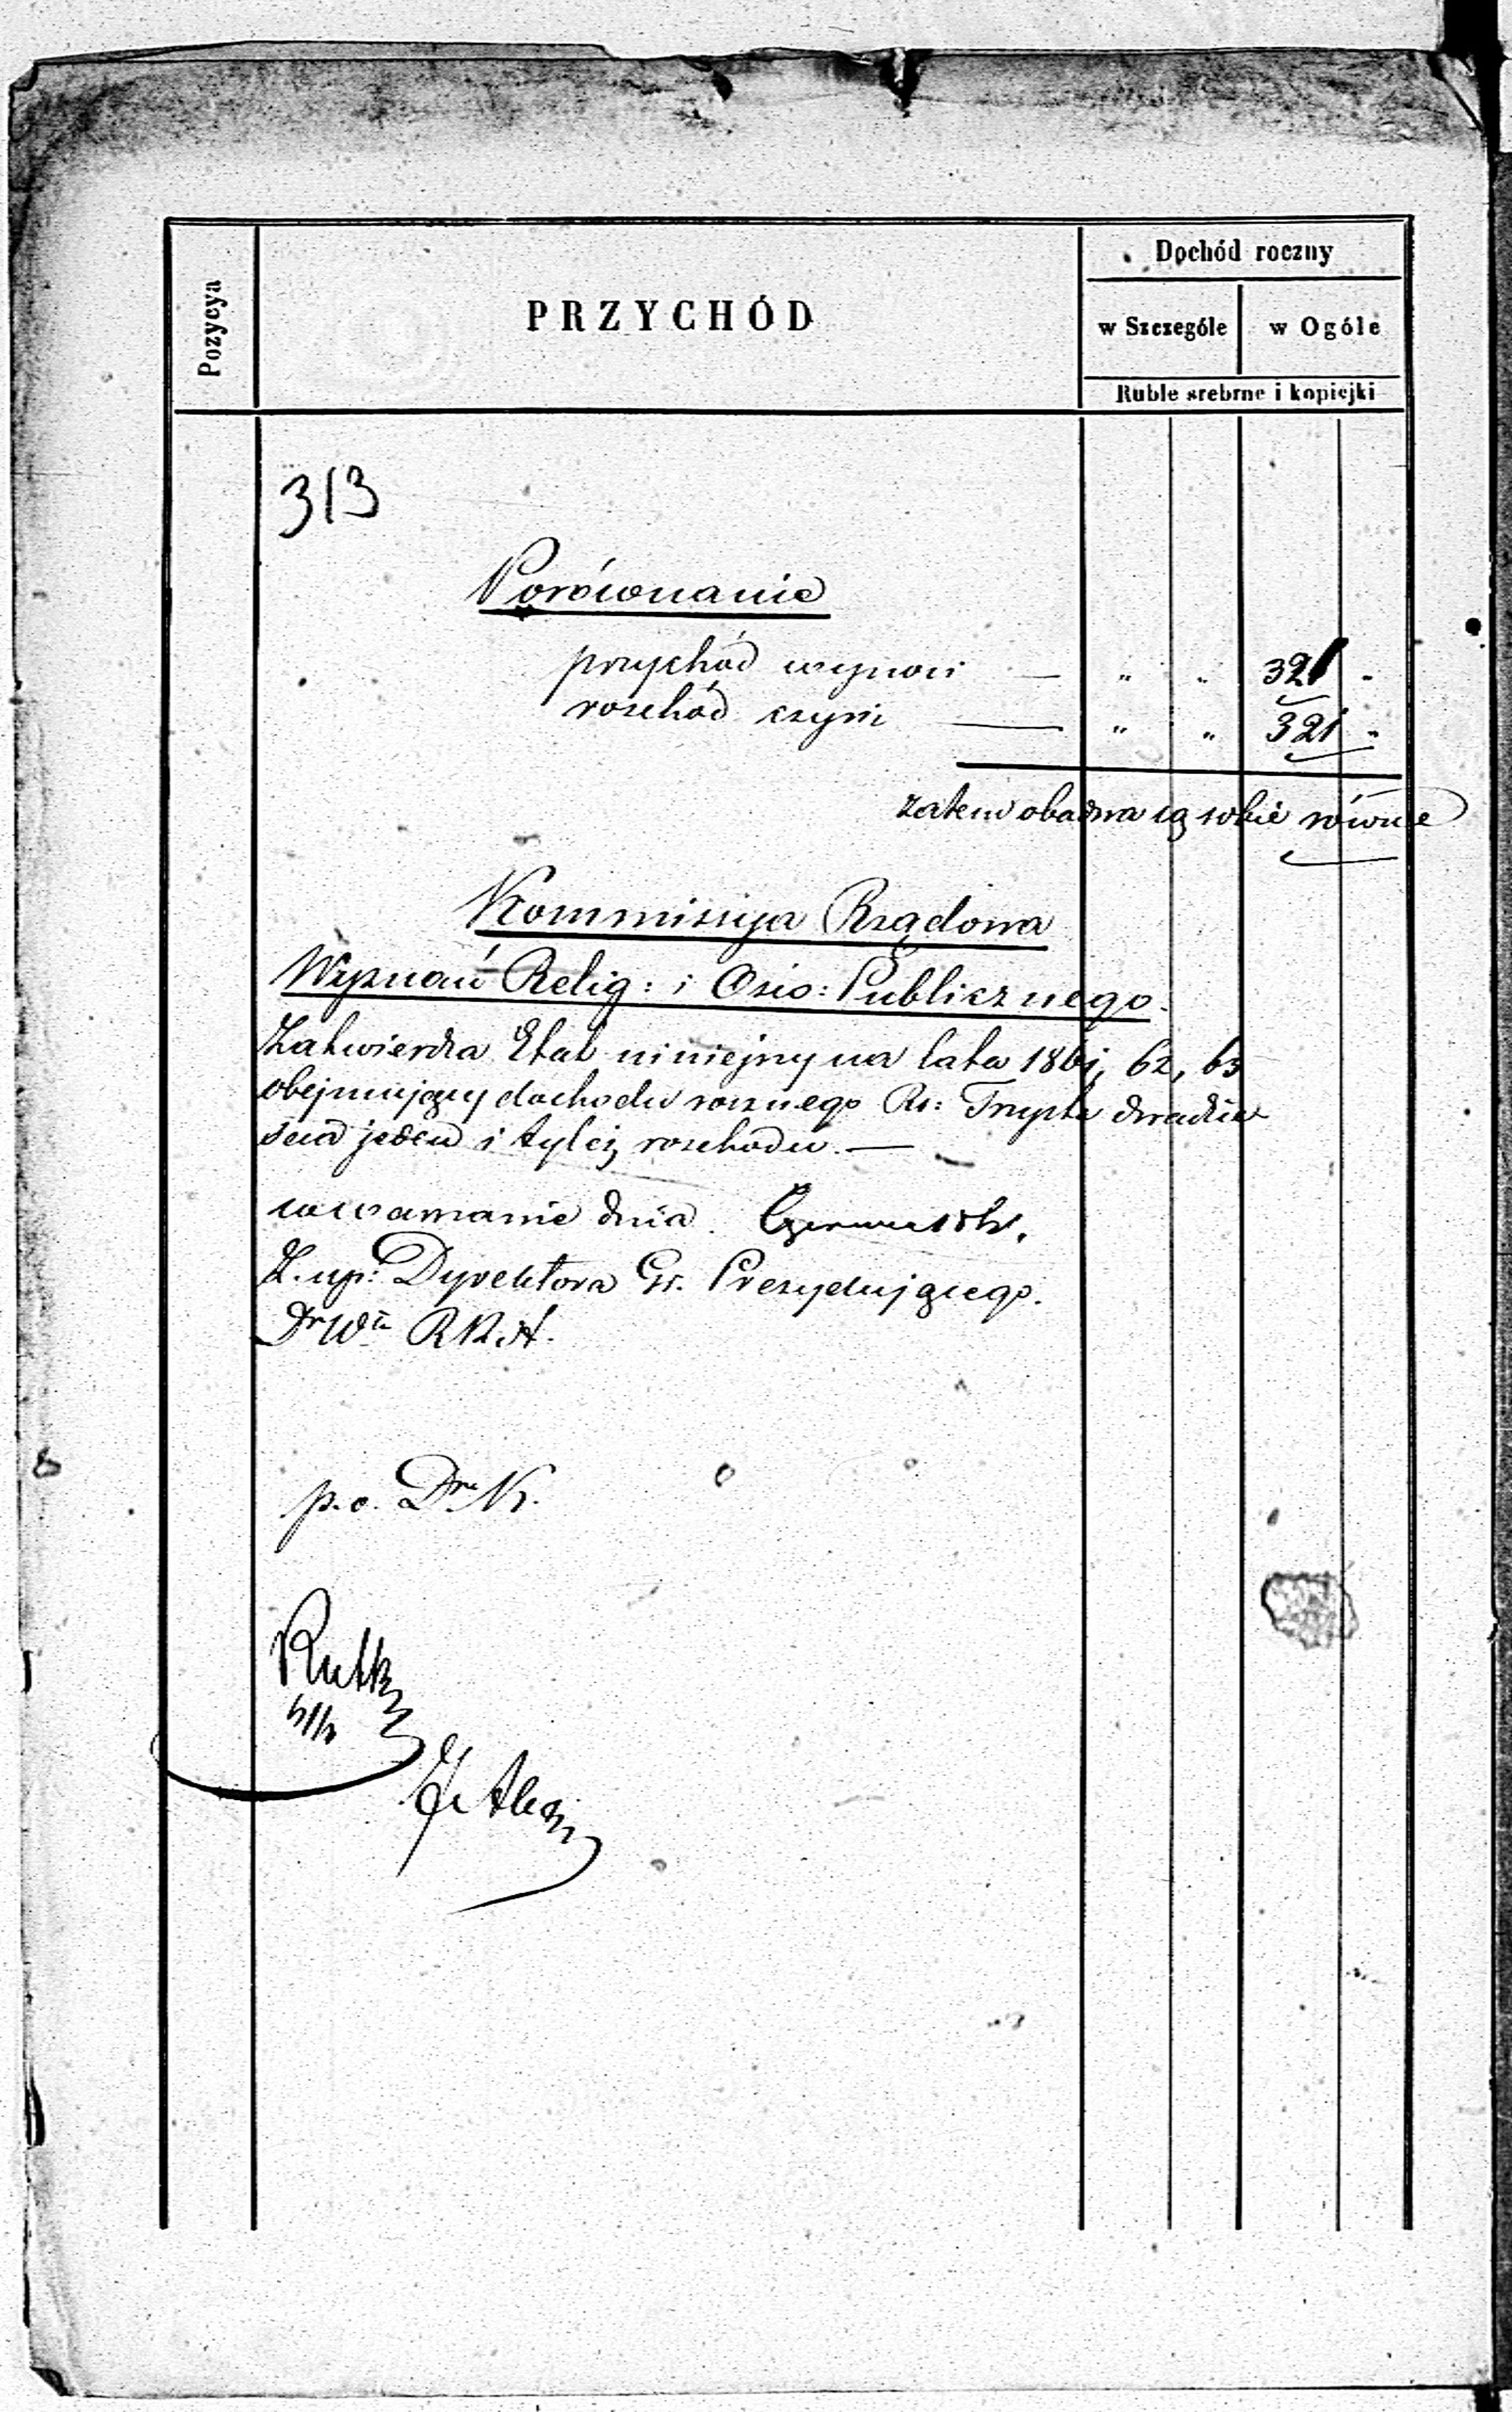 Pozycya
PRZYCHÓD
Dochód roczny
w Szczególe
w Ogóle
Ruble srebrne i kopiejki
313
Porównanie
przychód wynosi — " " 321 "
rozchód czyni — " " 321 "
zatem obadwa są sobie równe
Kommissyja Rządowa
Wyznań Relig: i Ośw: Publicznego.
Zatwierdza Etat niniejszy na lata 1861, 62, 63
obejmujący dochodu rocznego Rs: Trzysta dwadzie
ścia jeden i tyleż rozchodu. —
w Warszawie dnia Czerwca
Z. up: Dyrektora Gł. Prezydującego.
Dr Wu R. R. St.
p. o. Dra K.